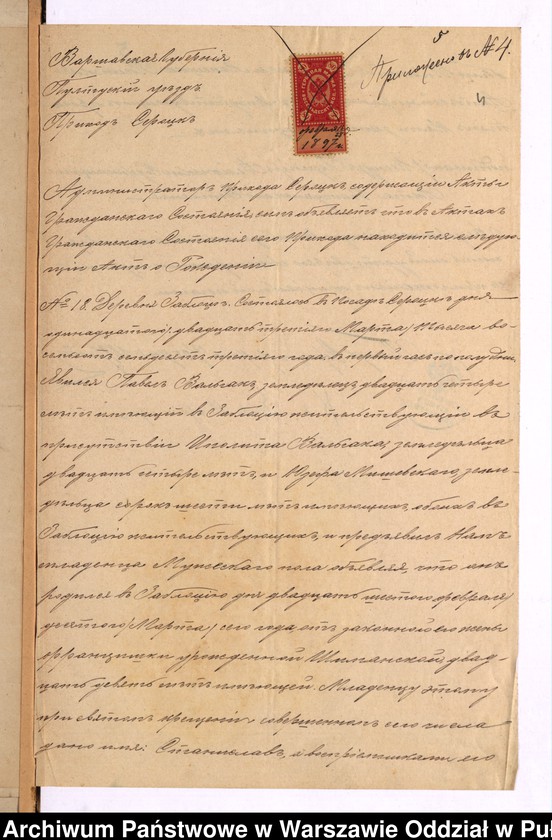 Приложенъ къ № 4.
4
Варшавская Губернія
Пултускій уѣздъ
Приходъ Сероцкъ
февраля
1897 г.
Администраторъ Прихода Сероцкъ содержащій Акты
Гражданскаго Состоянія симъ объявляетъ что въ Актахъ
Гражданскаго Состоянія сего Прихода находится слѣдую-
щій Актъ о Рожденіи
№ 18. Деревня Заблоце. Состоялось въ Посадѣ Сероцкъ дня
одинадцатаго / двадцать третьяго / Марта / тысяча во-
семьсотъ семьдесятъ третьяго года въ первый часъ по полудни.
Явился Павелъ земледѣлецъ двадцать четыре
лѣтъ имѣющій въ Заблоцю жительствующій въ
присутствіи Иполита земледѣльца
двадцать четыре лѣтъ, и Юзефа земле-
дѣльца сорокъ шести лѣтъ имѣющихъ, обоихъ въ
Заблоцю жительствующихъ, и предъявилъ Намъ
младенца Мужескаго пола объявляя, что онъ
родился въ Заблоцю дня двадцать шестого февраля /
десятого / Марта / сего года, отъ законной его жены
Францишки урожденной двад-
цать девять лѣтъ имѣющей. Младенцу этому
при святомъ крещеніи совершенномъ сего числа
дано имя: Станиславъ, а воспріемниками его
Archiwum Państwowe w Warszawie Oddział w Pu